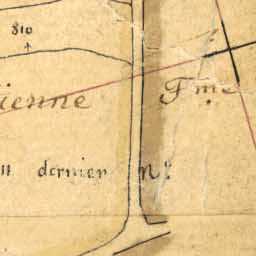 810
ienne Fme
n dernier No